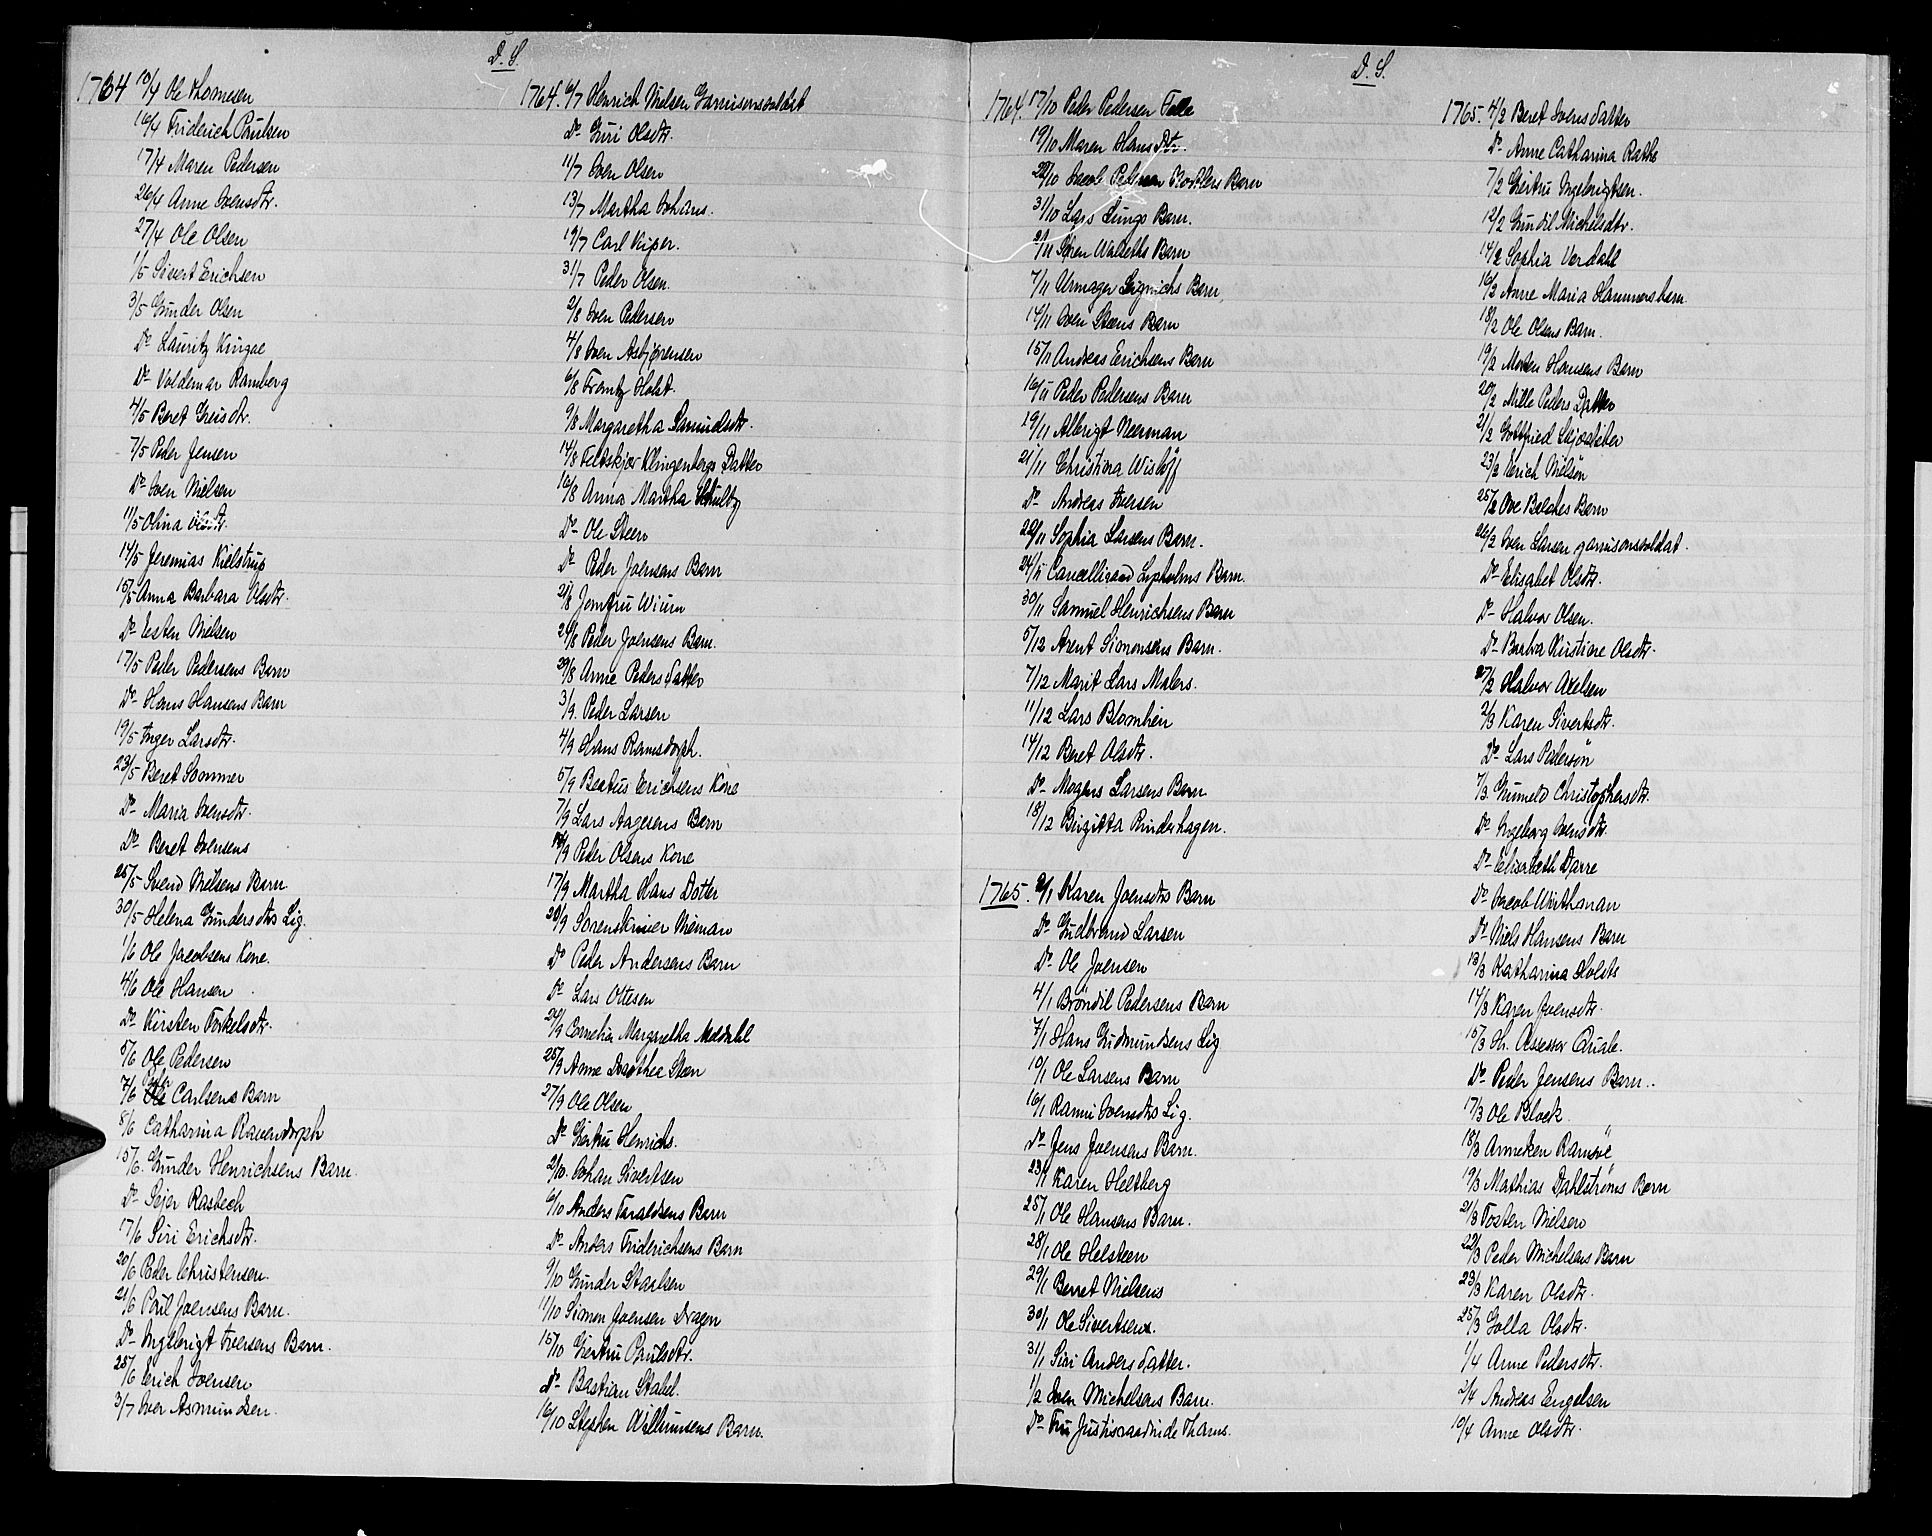 D. S.
1764 10/4 Ole Thomesen
16/4 Friderich Paulsen
17/4 Maren Pedersen
26/4 Anne Ivensdtr.
27/4 Ole Olsen
1/5 Sivert Erichsen
3/5 Gunder Olsen
Do Lauritz
Do Voldemar Ramberg
4/5 Beret
7/5 Peder Jensen
Do Iven Nielsen
11/5 Olina
14/5 Jeremias Kielstrup
15/5 Anna Barbara Olsdtr.
Do Esten Nielsen
17/5 Peder Pedersens Barn
Do Hans Hansens Barn
19/5 Inger Larsdtr.
23/5 Beret Sommer
Do Maria Ivensdtr.
Do Beret Ivensens
25/5 Svend Nielsens Barn
30/5 Helena Gundersdtrs Lig.
1/6 Ole Jacobsens Kone.
4/6 Ole Hansen
Do Kirsten Torkelsdtr.
5/6 Ole Pedersen
7/6 Carlsens Barn
8/6 Catharina Ravensdorph
15/6. Gunder Henrichsens Barn
Do Sejer Rasbech
17/6 Siri Erichsdtr.
20/6 Peder Christensen.
21/6 Poul Joensens Barn.
Do Ingebrigt Iversens Barn.
25/6 Erich Joensen
3/7 Iver Asmundsen.
1764. 6/7 Henrich Nielsen Garnisonsoldat
Do Guri Olsdtr.
11/7 Iven Olsen
13/7 Martha Johans.
19/7 Carl Kiper.
31/7 Peder Olsen.
2/8 Iven Pedersen
4/8 Iven Asbjørensen
6/8 Frantz Holst.
9/8 Margaretha Samuelsdtr.
14/8 Feldskjær Klingenbergs Datter
16/8 Anna Martha Schultz
Do Ole Steen
Do Peder Joensens Barn
21/8 Jomfru Wium
24/8 Peder Joensens Barn.
29/8 Anne Pedersdatter
3/9. Peder Larsen
4/9 Hans Ramsdorph.
5/9 Beatus Erichsens Kone
7/9 Lars Aagesens Barn
14/9 Peder Olsens Kone
17/9 Martha Hans Dotter
20/9 Sorenskriver Nieman
Do Peder Andersens Barn
Do Lars Ottesen
24/9 Cornelia Margaretha Meldahl
25/9 Anne Dorothee Steen
27/9 Ole Olsen
Do Gertru Henrichs.
2/10 Johan Sivertsen
6/10 Anders Taraldsens Barn
Do Anders Friderichsens Barn
9/10 Gunder Staalsen
11/10 Simon Joensen Dragon
15/10 Giertru Paulsdtr.
Do Bastian Stabel.
16/10 Stephen Willumsens Barn.
D. S.
1764. 17/10 Peder Pedersen
19/10 Maren Hansdtr.
22/10 Jacob Pedersen Barn
31/10 Lars Lungs Barn.
2/11 Søren Wolseths Barn
7/11 Urmager Barn
14/11 Iven Steens Barn
15/11 Andreas Erichsens Barn
16/11 Peder Pedersens Barn
19/11 Albrigt Neerman
21/11 Christina Wisløff
Do Andreas Iversen
22/11 Sophia Larsens Barn.
24/11 Cancelliraad Lysholms Barn.
30/11 Samuel Henrichsens Barn
5/12 Arent Simonsens Barn.
7/12 Marit Lars Malers.
11/12 Lars Blomhein
14/12 Beret Olsdtr.
Do Mogens Larsens Barn
18/12 Birgitta Rinderhagen.
1765. 2/1 Karen Joensdtrs Barn
Do Gudbrand Larsen
Do Ole Joensen
4/1 Brøndil Pedersens Barn
7/1 Hans Gudmundsens Lig
10/1 Ole Larsens Barn
16/1 Rannie Ivensdtrs Lig.
Do Jens Joensens Barn.
23/1 Karen Heltberg
25/1 Ole Hansens Barn.
28/1 Ole Helsteen
29/1 Berret Nielsens
30/1 Ole Sivertsen.
31/1 Siri Andersdatter.
1/2 Iven Michelsens Barn.
Do Fru Justisraadinde Thams.
1765. 4/2 Beret Ivensdatter
Do Anne Catharina Rathe
7/2 Giertru Ingebrigtsen.
12/2 Gundil Michelsdtr.
14/2 Sophia Verdahl
16/2 Anne Maria Hammersbern
18/2 Ole Olsens Barn.
19/2 Morten Hansens Barn
20/2 Mille Peders Datter
21/2 Gottfried
23/2 Erich Nielsøn
25/2 Ove Balches Barn
26/2 Iven Larsen garnisonsoldat.
Do Elisabet Olsdtr.
Do Halvor Olsen.
Do Barbra Kirstine Olsdtr.
27/2 Halvor Axelsen
2/3 Karen Sivertsdtr.
Do Lars Pedersøn
7/3. Gunneld Christophersdtr.
Do Ingeborg Ivensdtr.
Do Elisabeth Darre
Do Jacob Wirthman
Do Niels Hansens Barn
13/3 Katharina Holste
14/3 Karen Joensdtr.
15/3 Hr. Assessor Qvale.
Do Peder Jensens Barn..
17/3 Ole Block
18/3 Anneken Ramsøe
19/3 Mathias Dahlstrøms Barn
21/3 Tosten Nielsen
22/3 Peder Michelsens Barn
23/3 Karen Olsdtr.
25/3 Golla Olsdtr.
1/4 Anne Pedersdtr.
2/4 Andreas Engelsen
10/4 Anne Olsdtr.